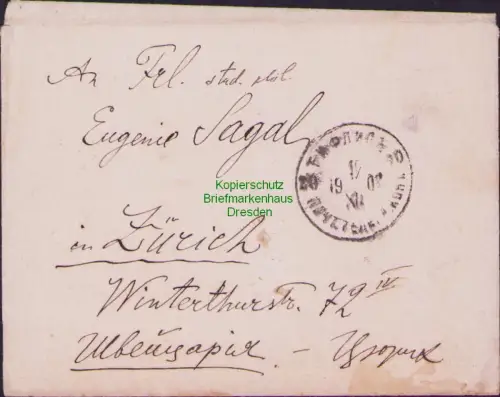 An Frl. stud. phil.
Eugenie Sagal
in Zürich
Winterthurstr. 72 IV
Швейцария - Цюрих
ТИФЛИСЪ
19
XII
Kopierschutz
Briefmarkenhaus
Dresden